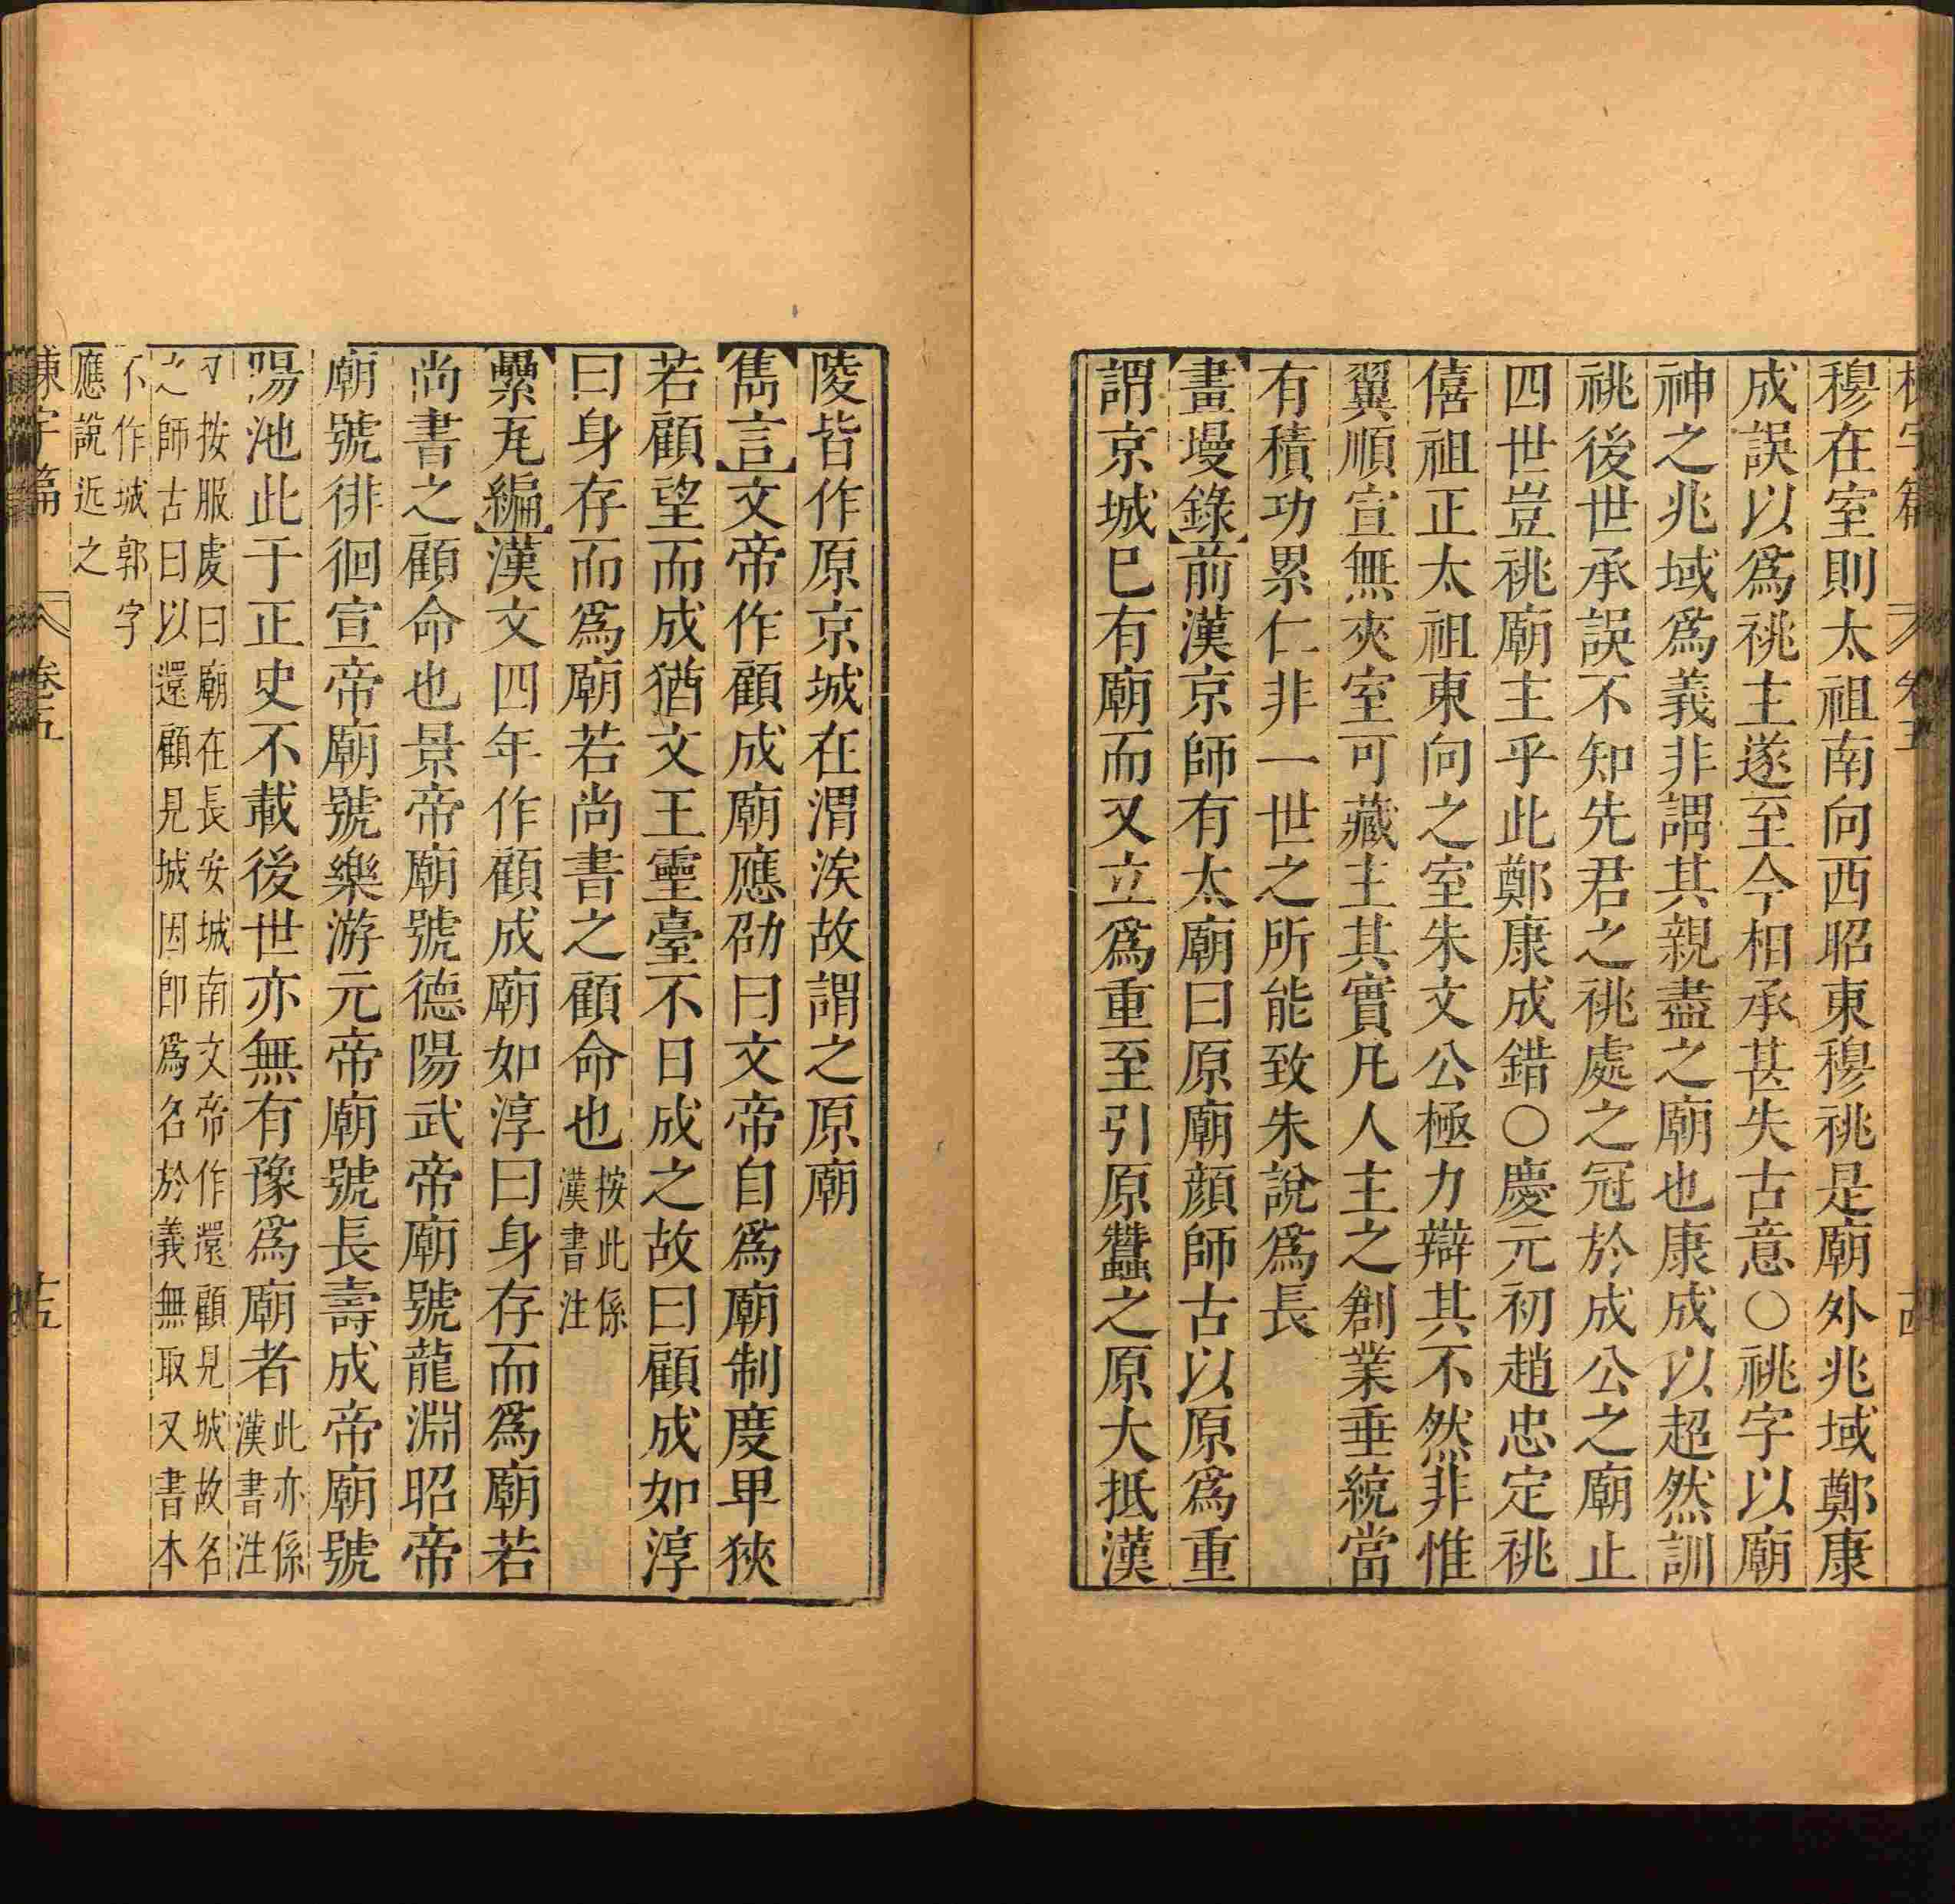 穆在室則太祖南向西昭東穆祧是廟外兆域鄭康
成誤以爲祧主遂至今相承甚失古意○祧字以廟
神之兆域爲義非謂其親盡之廟也康成以超然訓
祧後世承誤不知先君之祧處之冠於成公之廟止
四世豈祧廟主乎此鄭康成錯○慶元初趙忠定祧
僖祖正太祖東向之室朱文公極力辯其不然非惟
翼順宣無夾室可藏主其實凡人主之創業垂統當
有積功累仁非一世之所能致朱說爲長
畫墁錄前漢京師有太廟曰原廟顔師古以原爲重
謂京城巳有廟而又立爲重至引原蠶之原大抵漢
陵皆作原京城在渭涘故謂之原廟
雋言文帝作顧成廟應劭曰文帝自爲廟制度卑狹
若顧望而成猶文王靈臺不日成之故曰顧成如淳
曰身存而爲廟若尚書之顧命也按此係
漢書注
纍瓦編漢文四年作顧成廟如淳曰身存而爲廟若
尚書之顧命也景帝廟號德陽武帝廟號龍淵昭帝
廟號徘徊宣帝廟號樂游元帝廟號長壽成帝廟號
陽池此于正史不載後世亦無有豫爲廟者此亦係
漢書注
按服虔曰廟在長安城南文帝作還顧見城故名
之師古曰以還顧見城因卽爲名於義無取又書本
不作城郭字
應說近之
卷五
十五